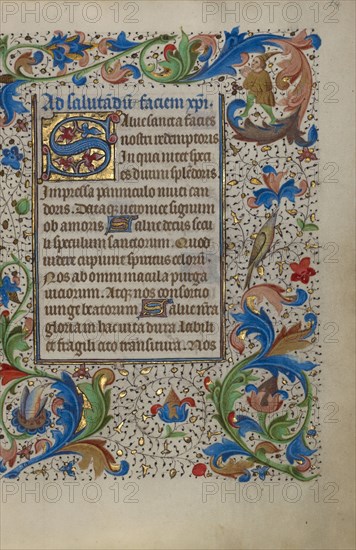 Ad salutadu faciem xpi.
Salue sancta facies
nostri redemptoris
In qua nitet speci
es diuini splendoris
Impressa panniculo niuei can
doris. Dataq; veronice signum
ob amoris Salue decus secu
li speculum sanctorum. Quod
videre cupiunt spiritus celorum
Nos ab omni macula purga
viciorum. Atq; nos consortio
iunge beatorum Salue nostra
gloria in hac vita dura labili
et fragili cito transitura. Nos
PHOTO 12